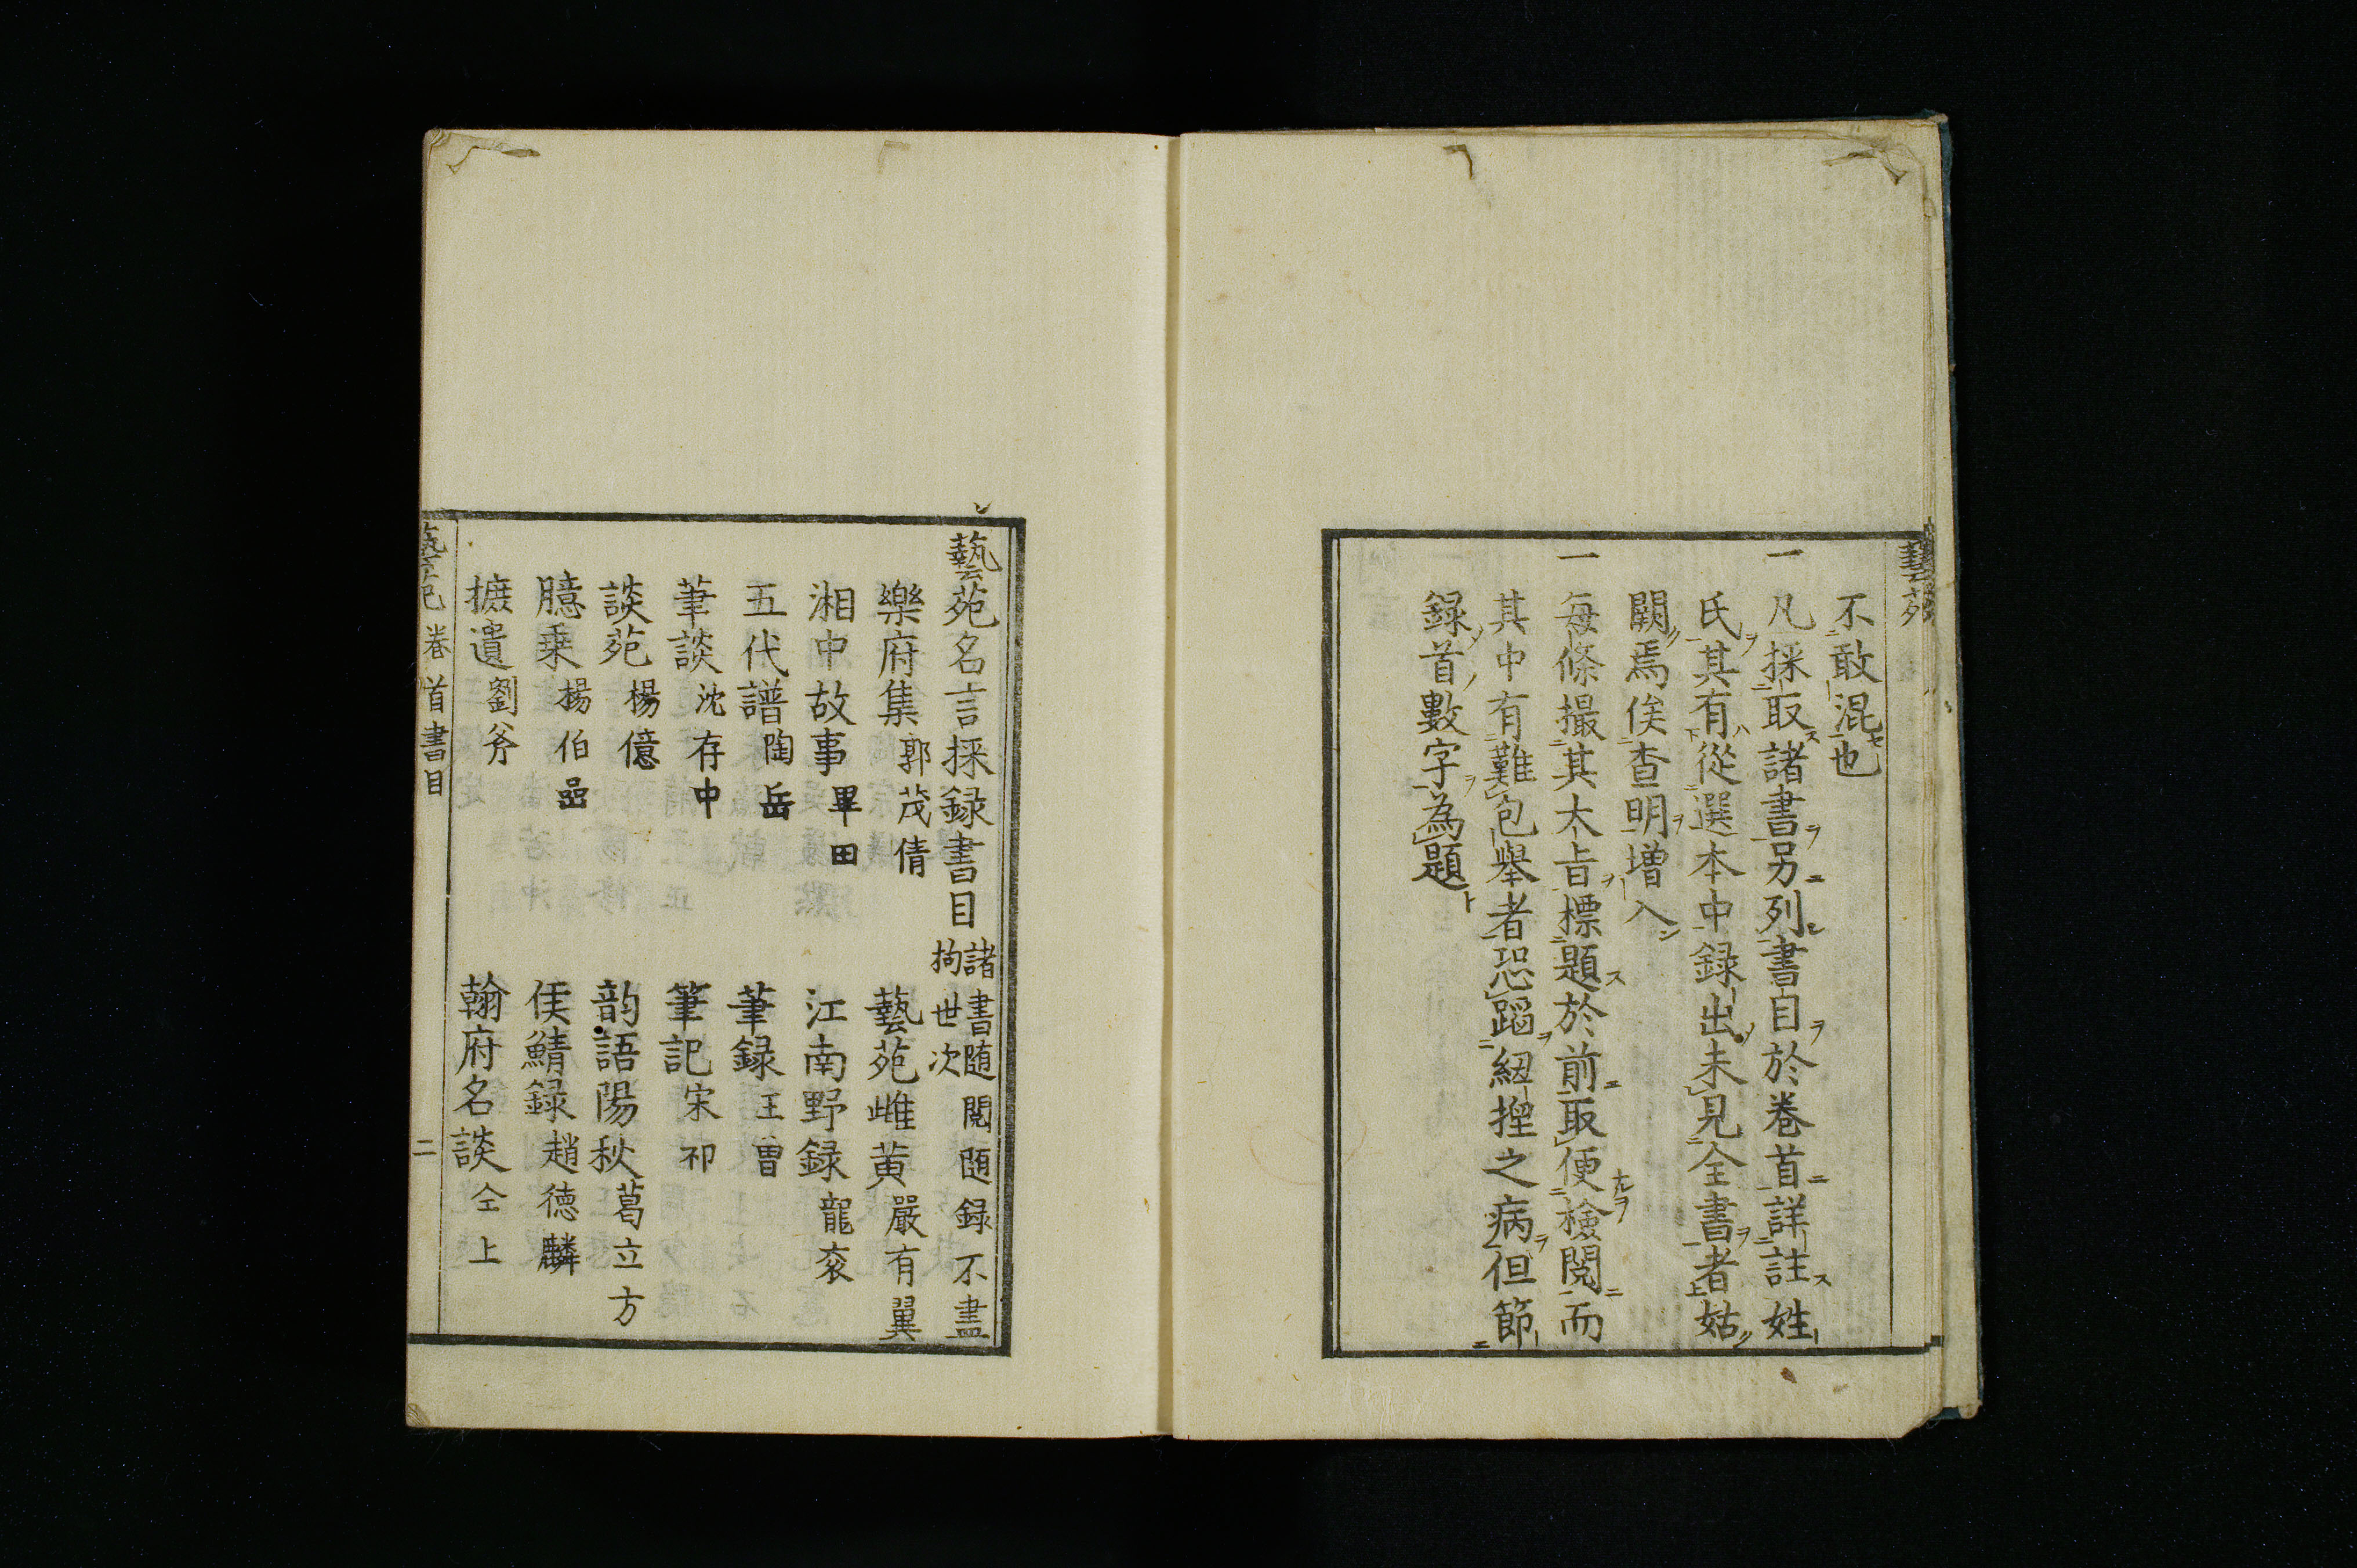 藝苑
不敢混也
一凡採取諸書另列書目於卷首詳註姓
氏其有從選本中録出未見全書者姑
闕焉俟查明増入
一每條撮其大旨標題於前取便檢閲而
其中有難包舉者恐蹈綑揑之病但節
録首數字為題
藝苑名言採録書目 諸書随閲随録不盡
拘世次
樂府集 郭茂倩 藝苑雌黄 嚴有翼
湘中故事 畢田 江南野録 龍衮
五代譜 陶岳 筆録 王曽
筆談 沈存中 筆記 宋祁
談苑 楊億 韵語陽秋 葛立方
臆乗 楊伯嵒 侯鯖録 趙德麟
摭遺 劉斧 翰府名談 仝上
藝苑 卷首書目 二